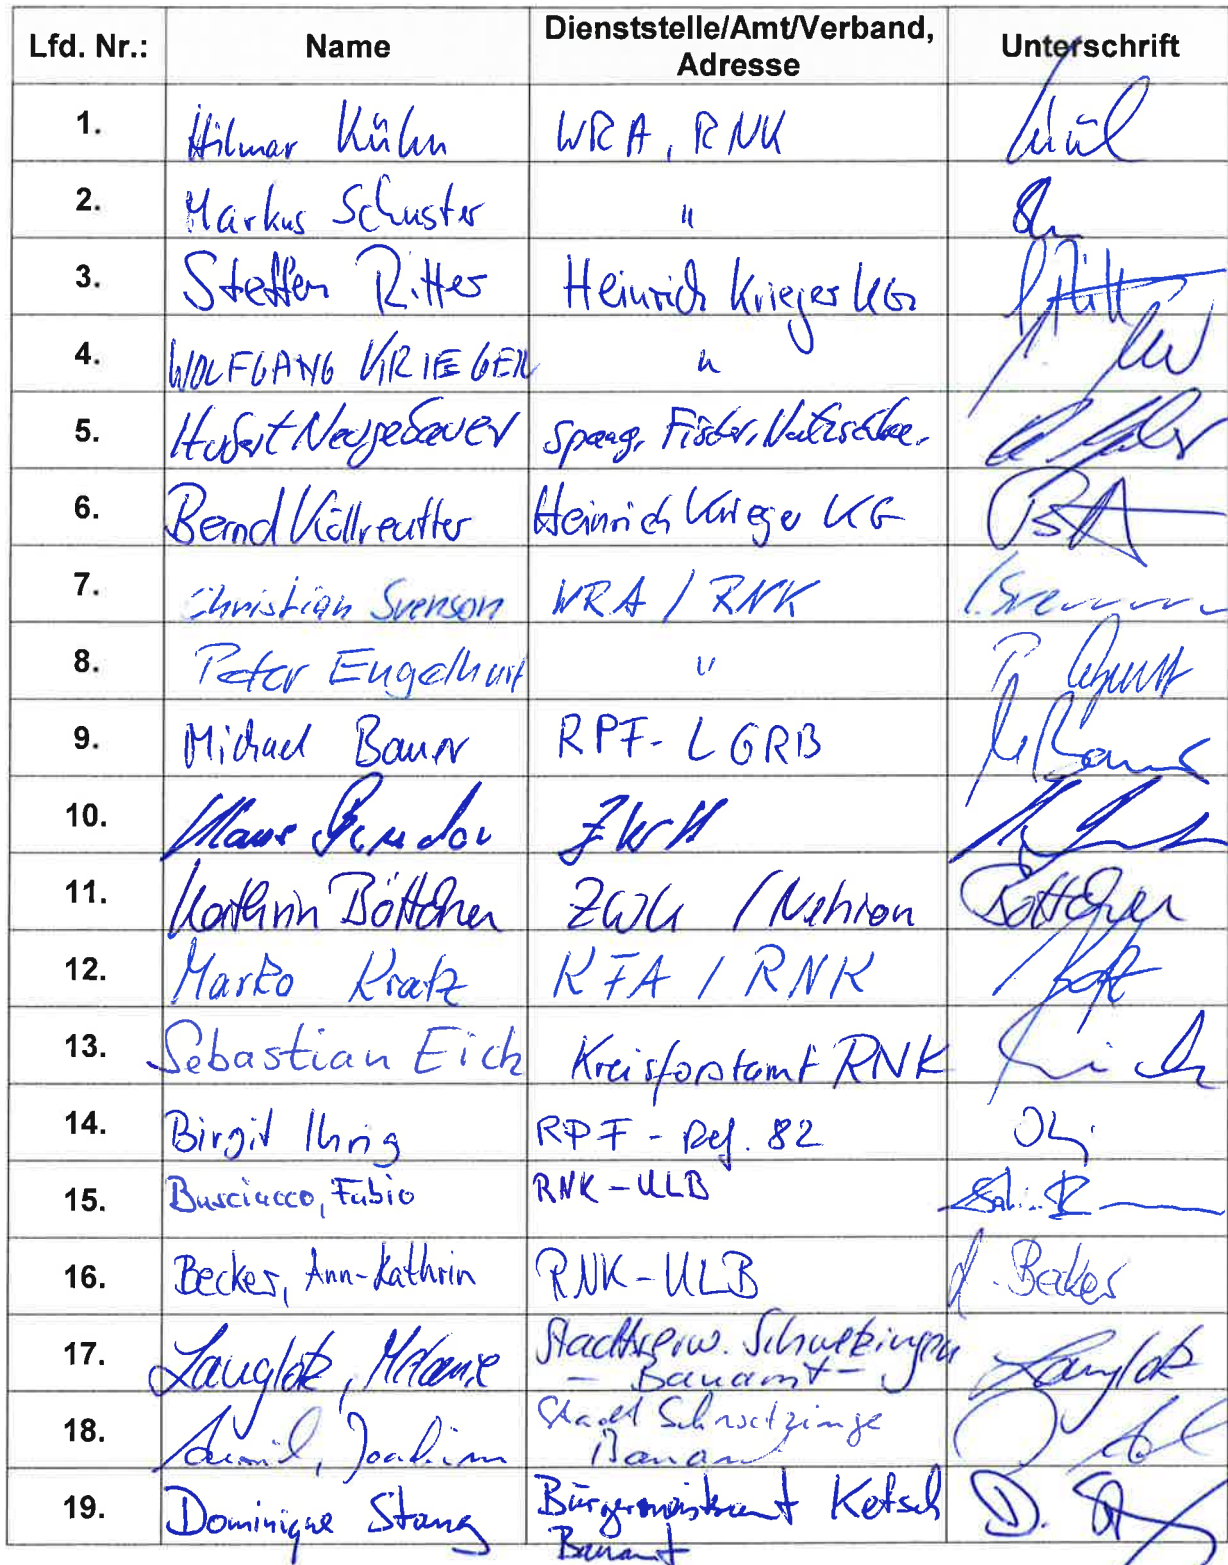 Lfd. Nr.: Name Dienststelle/Amt/Verband, Unterschrift
Adresse
1. Hilmar Kühn WRA, RNK
2. Markus Schuster "
3. Steffen Ritter Heinrich Krieger KG
4. WOLFGANG KRIEGER "
5. Hubert Neugebauer Spang, Fischer, Natzschka.
6. Bernd Köllreutter Heinrich Krieger KG
7. Christian Svenson WRA / RNK
8. Peter Engelhart "
9. Michael Bauer RPF - LGRB
10. Klaus
11. Kathrin Böttcher ZWK Böttcher
12. Marko Kratz KFA / RNK
13. Sebastian Eich Kreisforstamt RNK
14. Birgit Ihrig RPF - Ref. 82
15. Busciacco, Fabio RNK - ULB
16. Becker, Ann-Kathrin RNK - ULB A. Becker
17. Langlotz, Melanie Stadtverw. Schwetzingen Langlotz
- Bauamt -
18. Joachim Stadt Schwetzinge
Bauam
19. Dominique Stang Bürgermeisteramt Ketsch
Bauamt